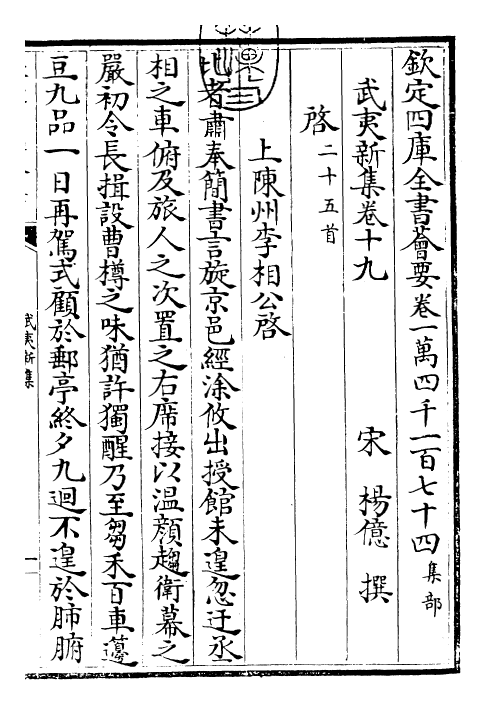 欽定四庫全書薈要卷一萬四千一百七十四集部
武夷新集卷十九
宋楊億撰
啓二十五首
上陳州李相公啓
此者肅奉簡書言旋京邑經涂攸出授館未遑忽迂丞
相之車俯及旅人之次置之右席接以温顔趨衛幕之
嚴初令長揖設曹樽之味猶許獨醒乃至芻禾百車籩
豆九品一日再駕式顧於郵亭終夕九迴不遑於肺腑
武夷新集
一